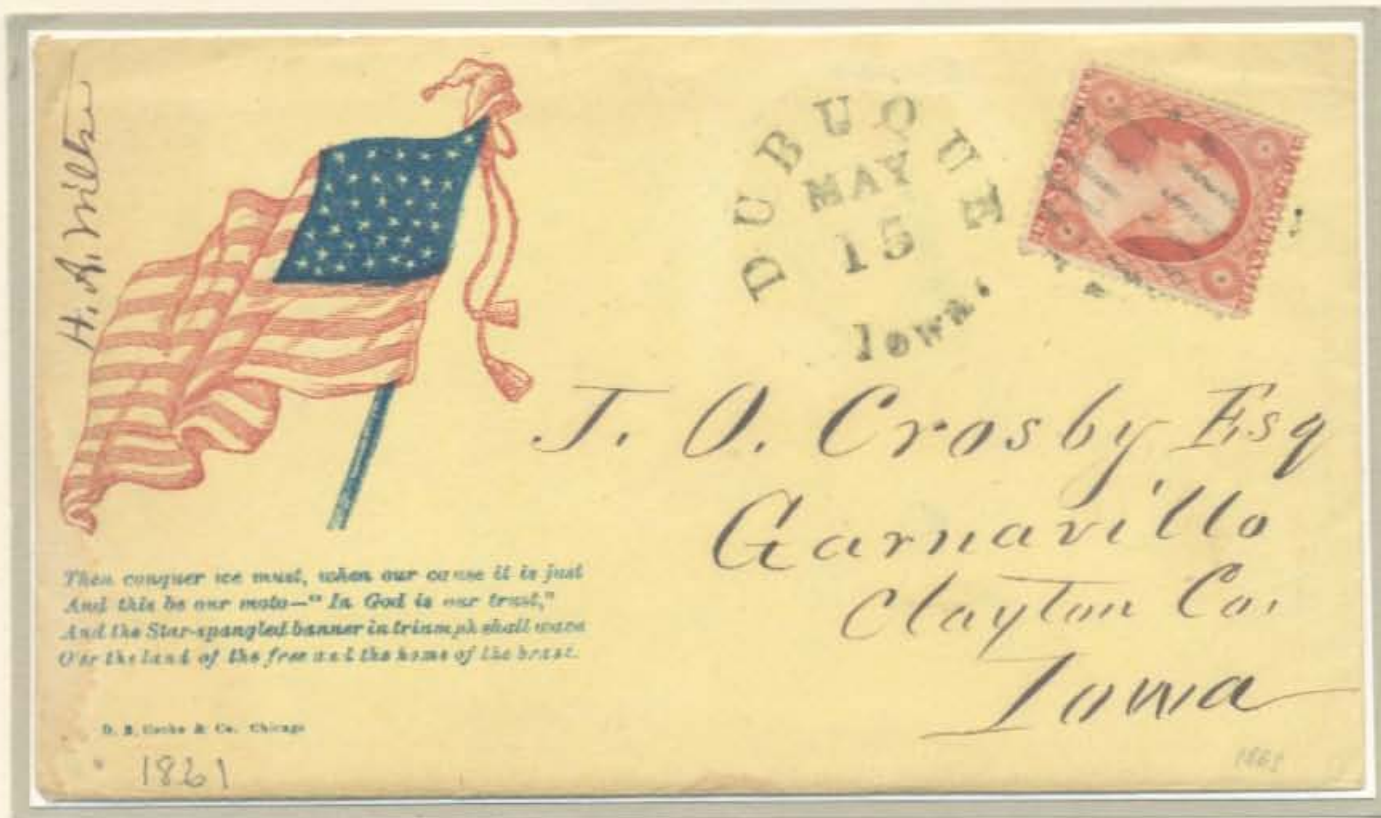 DUBUQUE
MAY
15
Iowa.
J. O. Crosby Esq
Garnavillo
Clayton Co.
Iowa
Then conquer we must, when our cause it is just
And this be our moto—"In God is our trust,"
And the Star-spangled banner in triumph shall wave
O'er the land of the free and the home of the brave.
D. B. Cooke & Co. Chicago
1861
1861
H. A. Wiltse